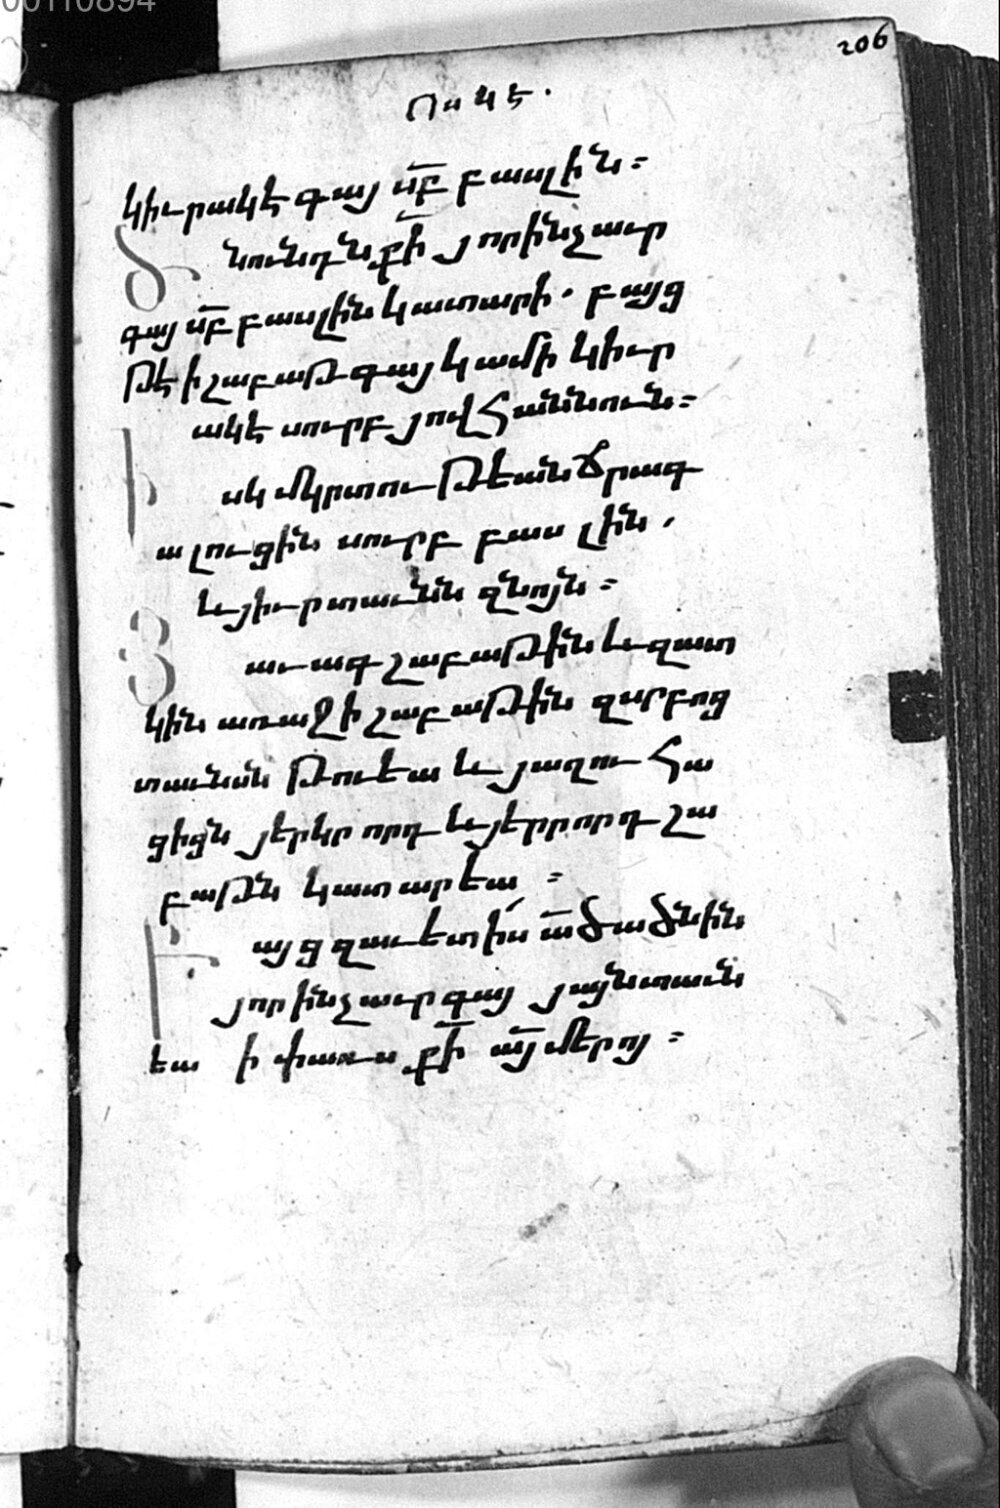 00110894
206
Ո ս կ է .
կիւրակէ գայ սբ բասլին։
Ծնունդն քի յորինչ աւր
գայ սբ բասլին կատարի. բայց
թէ ի շաբաթ գայ կամ ի կիւր
ակէ սուրբ յովհաննուն։
Իսկ մկրտութեան ճրագ
ալուցին սուրբ բասլին,
և յիւր տաւնն զնոյն։
Զաւագ շաբաթին և զատ
կին առաջի շաբաթին զսրբոց
տաւնսն թուեա և յաղուհա
ցիցն յերկրորդ և յերրորդ շա
բաթն կատարեա։
Բայց զաւետիս ածածնին
յորինչ աւր գայ յայնտաւն
եա ի փառս քի այ մերոյ։